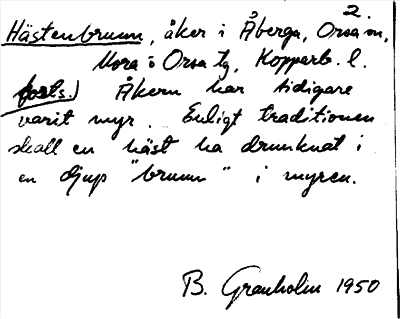 2.
Hästenbrunn, åker i Åberga, Orsa sn,
Mora o Orsa tg, Kopparb. l.
forts.) Åkern har tidigare
varit myr. Enligt traditionen
skall en häst ha drunknat i
en djup "brunn" i myren.
B. Granholm 1950